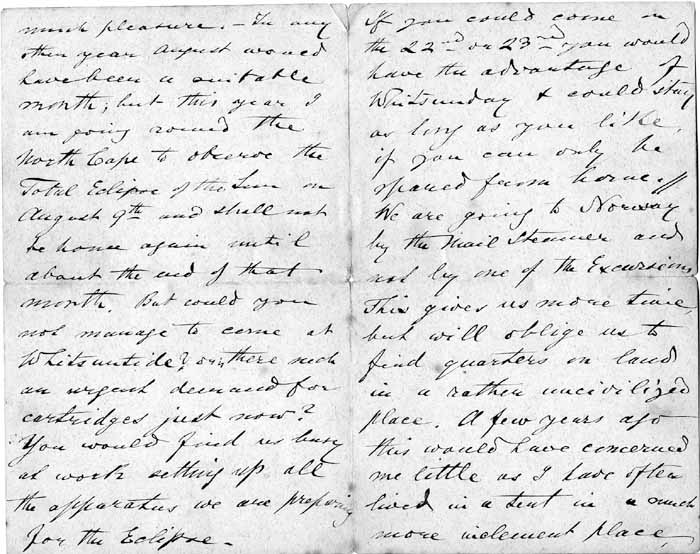 much pleasure. — In any
other year August would
have been a suitable
month; but this year I
am going round the
North Cape to observe the
Total Eclipse of the Sun on
August 9th and shall not
be home again until
about the end of that
month. But could you
not manage to come at
Whitsuntide? or is there such
an urgent demand for
cartridges just now?
You would find us busy
at work setting up all
the apparatus we are preparing
for the Eclipse —
If you could come on
the 22nd or 23rd you would
have the advantage of
Whitsunday & could stay
as long as you like,
if you can only be
spared from home. //
We are going to Norway
by the Mail Steamer and
not by one of the Excursions
This gives us more time,
but will oblige us to
find quarters on land
in a rather uncivilized
place. A few years ago
this would have concerned
me little as I have often
lived in a tent in a much
more inclement place,